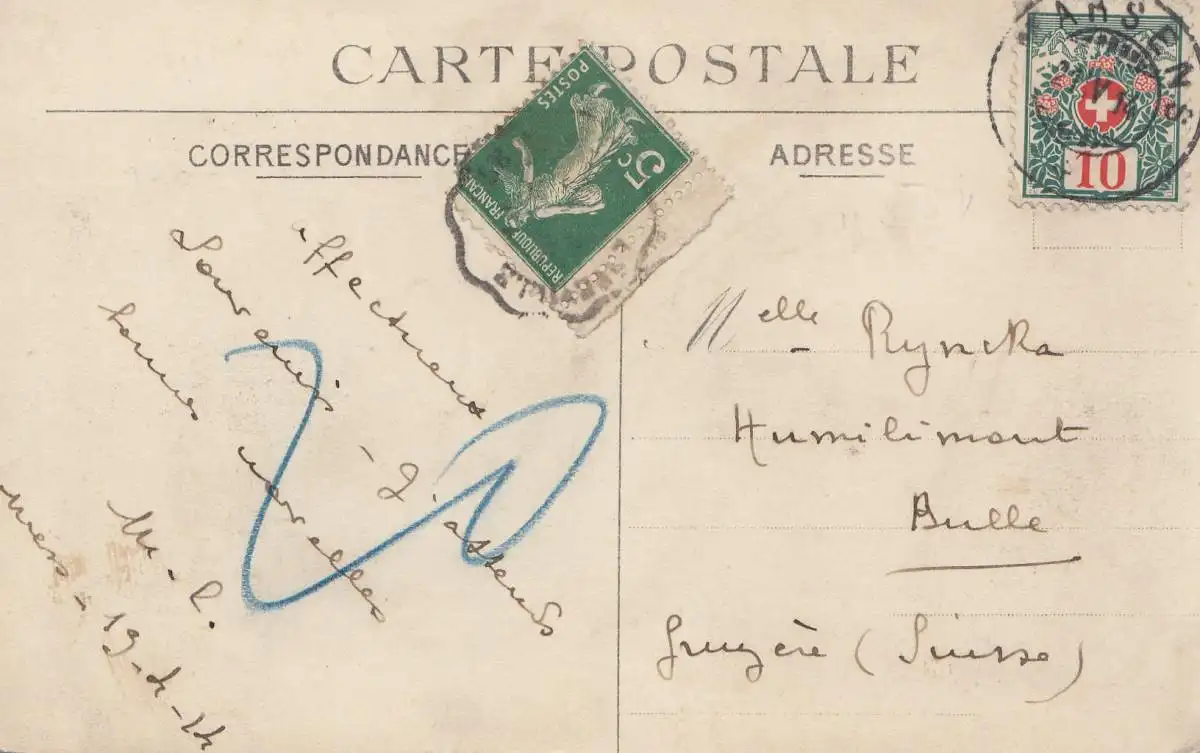 CARTE POSTALE
CORRESPONDANCE
ADRESSE
5 c
POSTES
REPUBLIQUE FRANÇAISE
10
affectueux
Souvenir - J'attends
bonnes nouvelles
M. L.
19-4-14
20
Melle Ryncka
Humilimont
Bulle
Gruyère (Suisse)